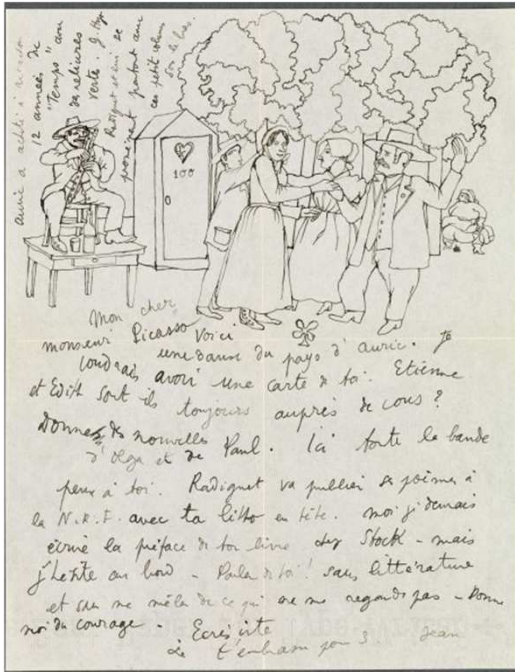 auric a acheté à
12 années de
"Temps" aux
reliures
vertes. J. Hugo
Radiguet et lui se
promènent partout avec
ces petits volumes
100
Mon cher
monsieur Picasso voici
une danse du pays d'auric. Je
voudrais avoir une carte de toi. Etienne
et Edith sont ils toujours auprès de vous?
Donnez des nouvelles de Paul. Ici toute la bande
d'Olga et de
pense à toi. Radiguet va publier ses poèmes à
la N.R.F. avec ta litho en tête. moi je devrais
écrire la préface de ton livre chez Stock - mais
j'hésite au bord - Parler de toi! sans littérature
et sans me mêler de ce qui ne me regarde pas - Donne
moi du courage - Ecris vite
Je t'embrasse Jean